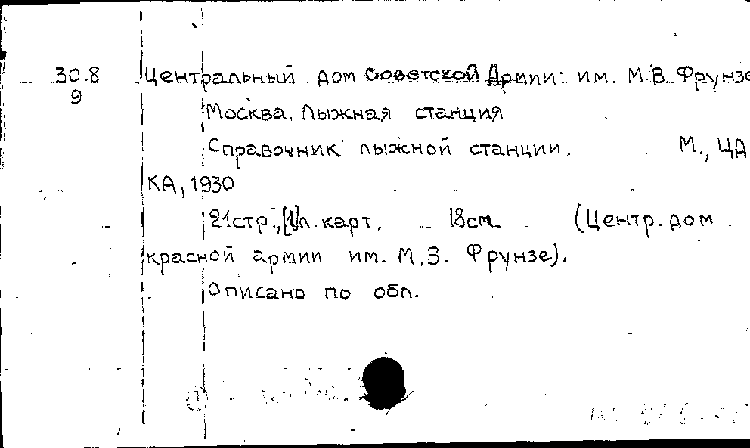 30.8 Центральный дом Советской Армии им. М.В. Фрунзе
9
Москва. Лыжная станция
Справочник лыжной станции. М., ЦД
КА, 1930
21стр., [1]л. карт. 18см. (Центр. дом
красной армии им. М.В. Фрунзе).
Описано по обл.